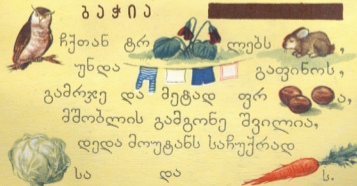 ბაჭია
ჩუთან ტრ ლებს ,
უნდა გაფინოს,
გამრჯე და მეტად ფრ ა,
მშობლის გამგონე შვილია,
დედა მოუტანს საჩუქრად
სა და ს.